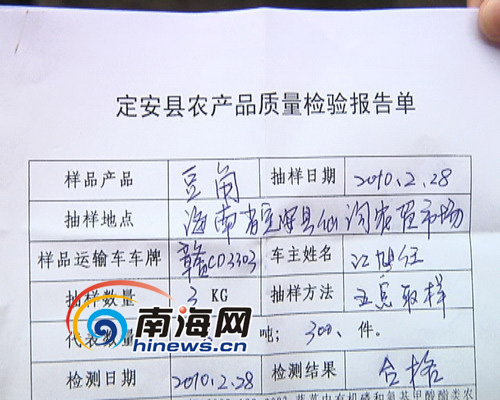 定安县农产品质量检验报告单
样品产品 豆角 抽样日期 2010.2.28
抽样地点 海南省定安县仙沟农贸市场
样品运输车车牌 赣CD3303 车主姓名
抽样数量 3 KG 抽样方法 五点取样
代表数量 吨; 300、件。
南海网
hinews.cn
检测日期 2010.2.28 检测结果 合格